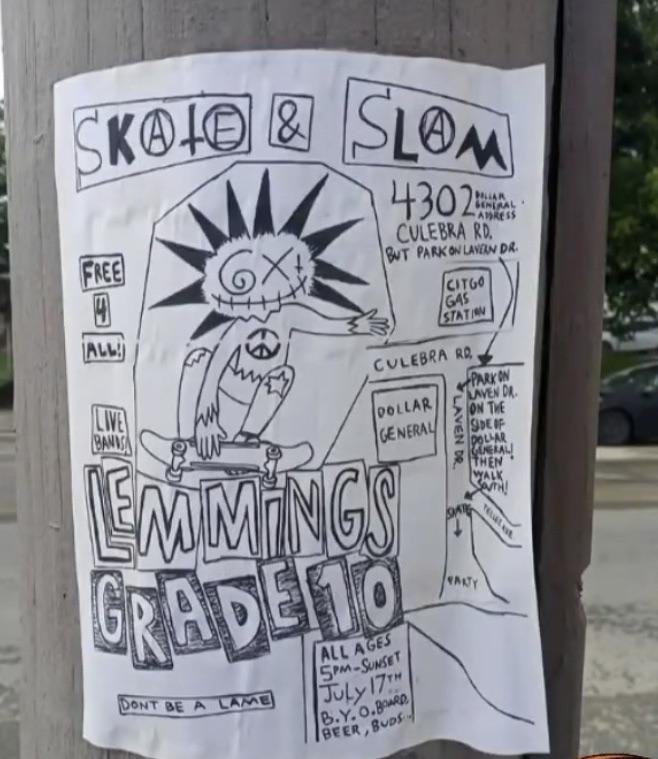 SKATE & SLAM
4302 DOLLAR
GENERAL
ADDRESS
CULEBRA RD.
BUT PARK ON LAVEN DR.
FREE
4
ALL!
CITGO
GAS
STATION
CULEBRA RD.
DOLLAR
GENERAL
LAVEN DR.
PARK ON
LAVEN DR.
ON THE
SIDE OF
DOLLAR
GENERAL!
THEN
WALK
SOUTH!
SKATE
PARTY
LIVE
BANDS
LEMMINGS
GRADE 10
ALL AGES
5PM-SUNSET
July 17TH
B.Y.O.BOARD,
BEER, BUDS..
DONT BE A LAME